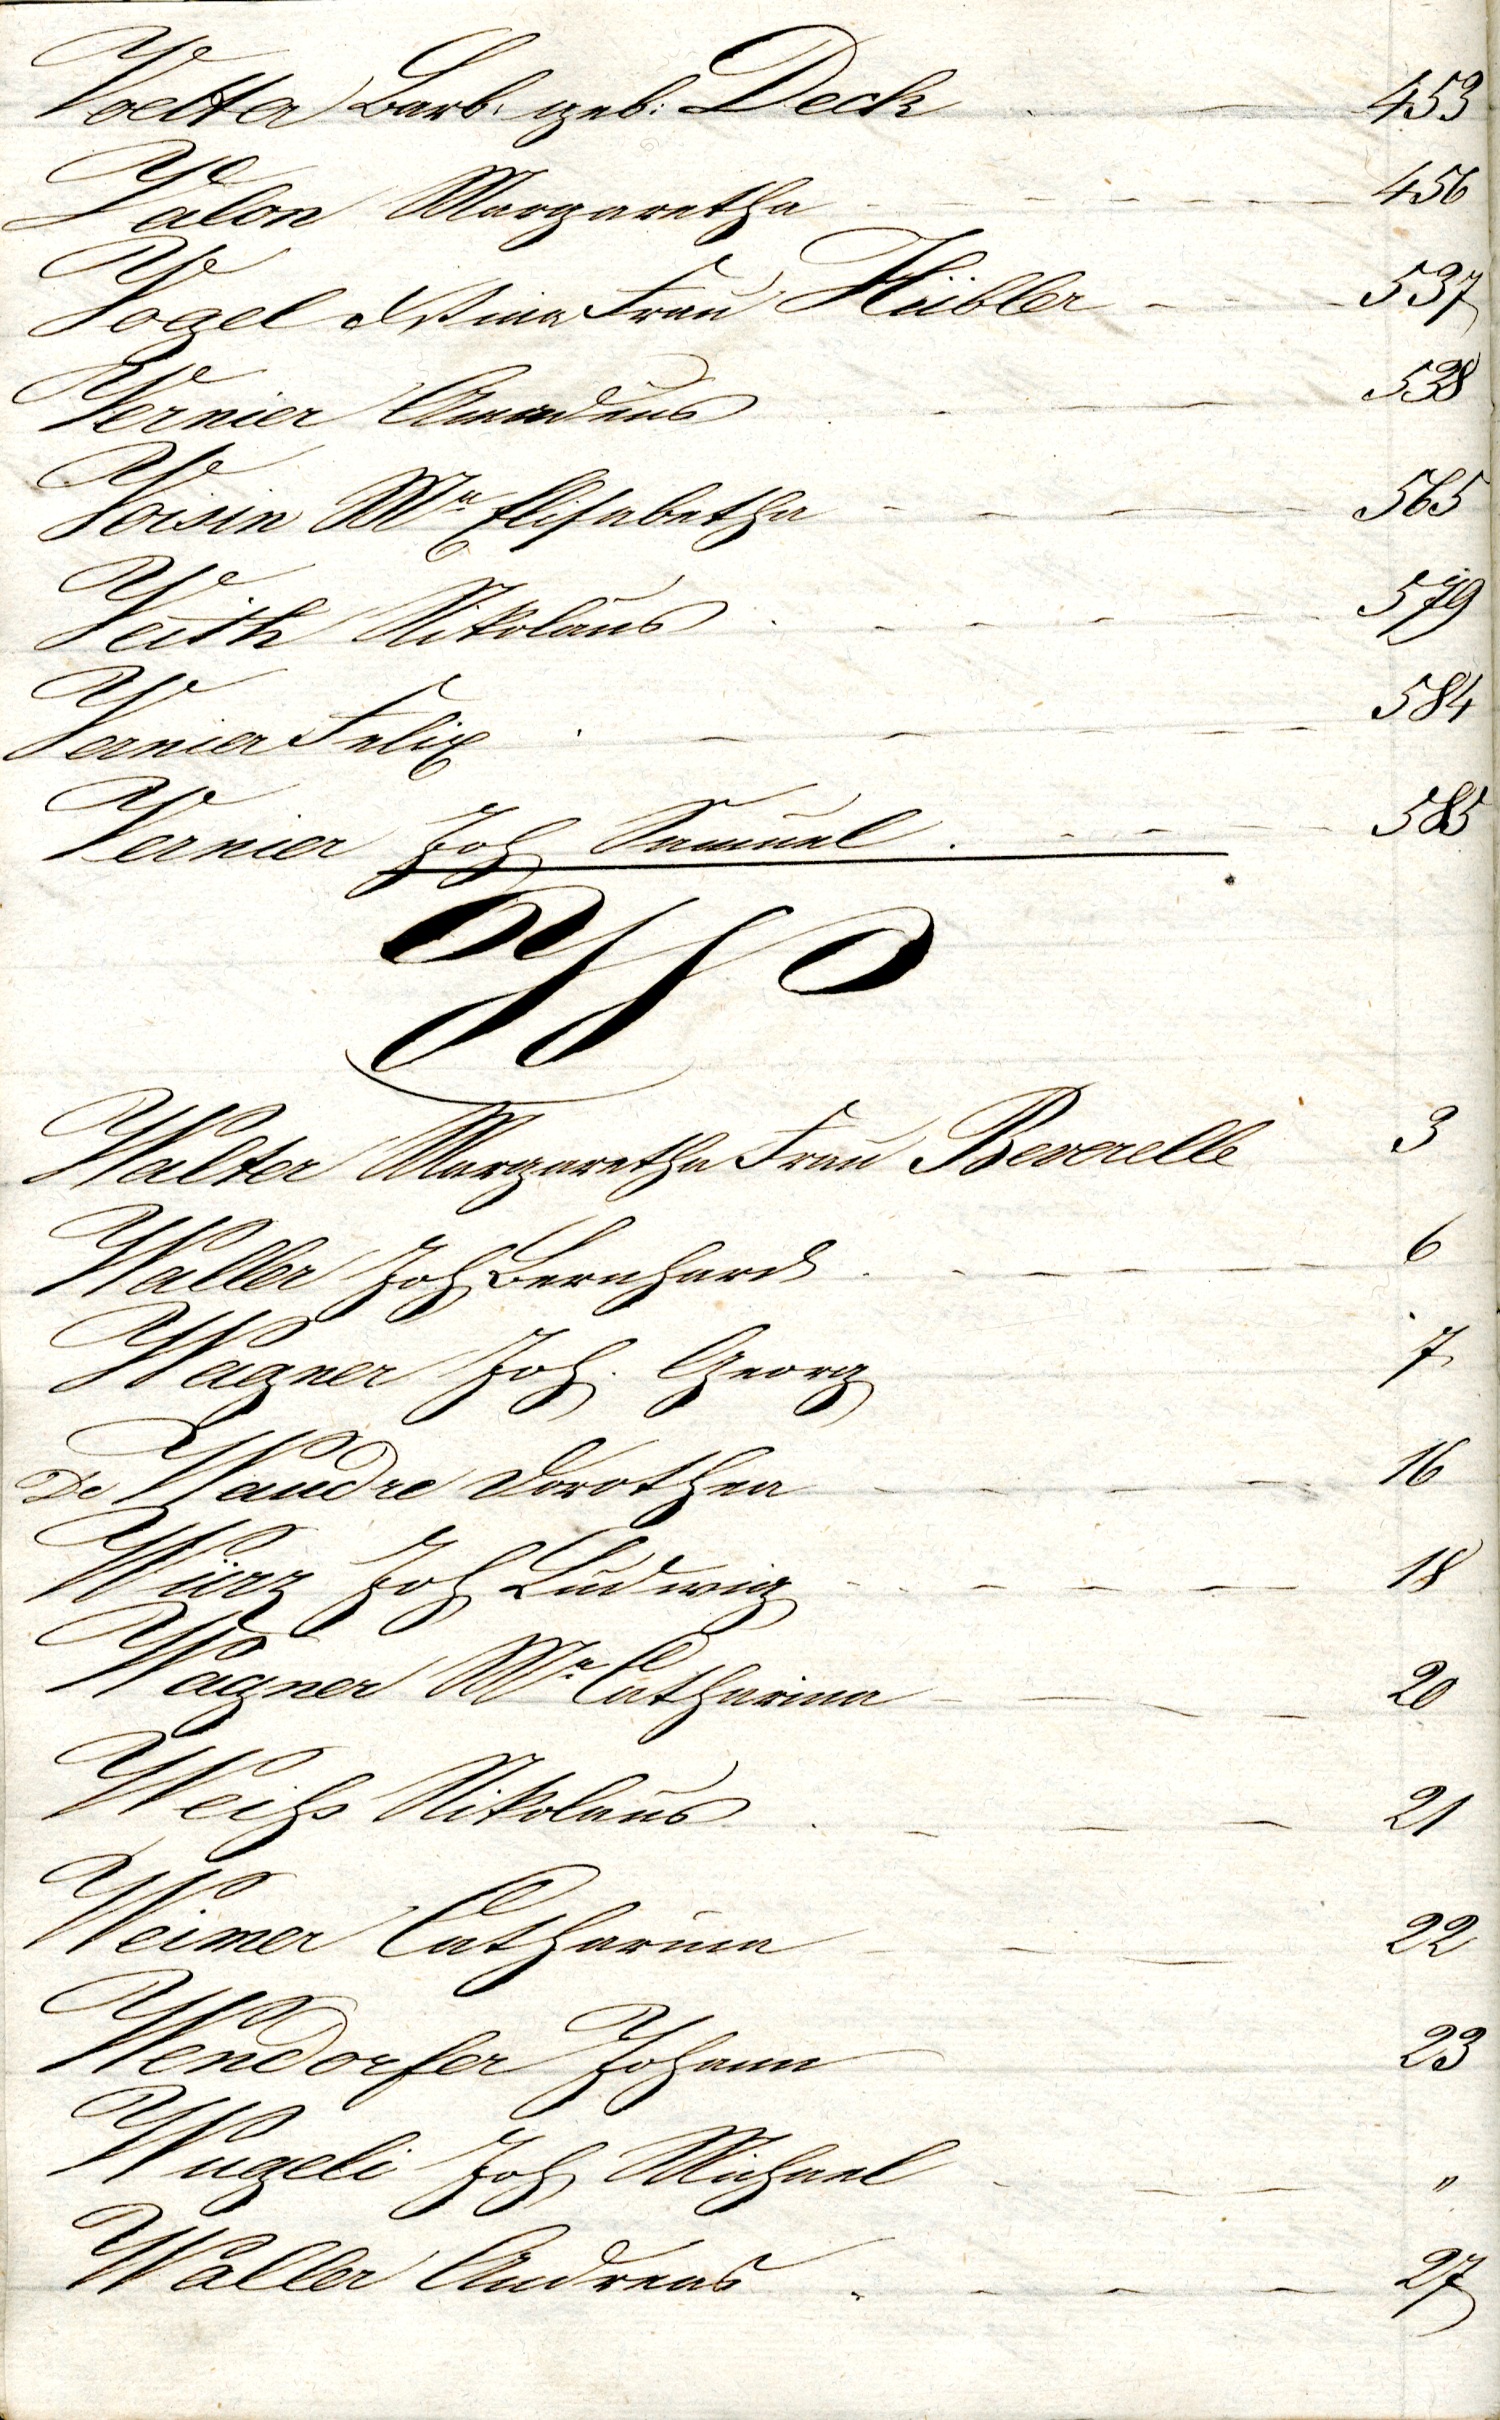 Voelter Barb. geb: Deck 453
Valon Margaretha 456
Vogel Frau Hübler 537
Vernier Amadeus 538
Voisin Mª Elisabetha 565
Veith Nikolaus 579
Vernier Felix 584
Vernier Joh Samuel 585
W
Walter Margaretha Frau Beverelle 3
Waller Joh Bernhard 6
Wagner Joh. Georg 7
De Waudre Dorothea 16
Würz Joh Ludwig 18
Wagner Mª Catharina 20
Weiß Nikolaus 21
Weimer Catharina 22
Wendorfer Johann 23
Wugeli Joh Michael "
Waller Andreas 27